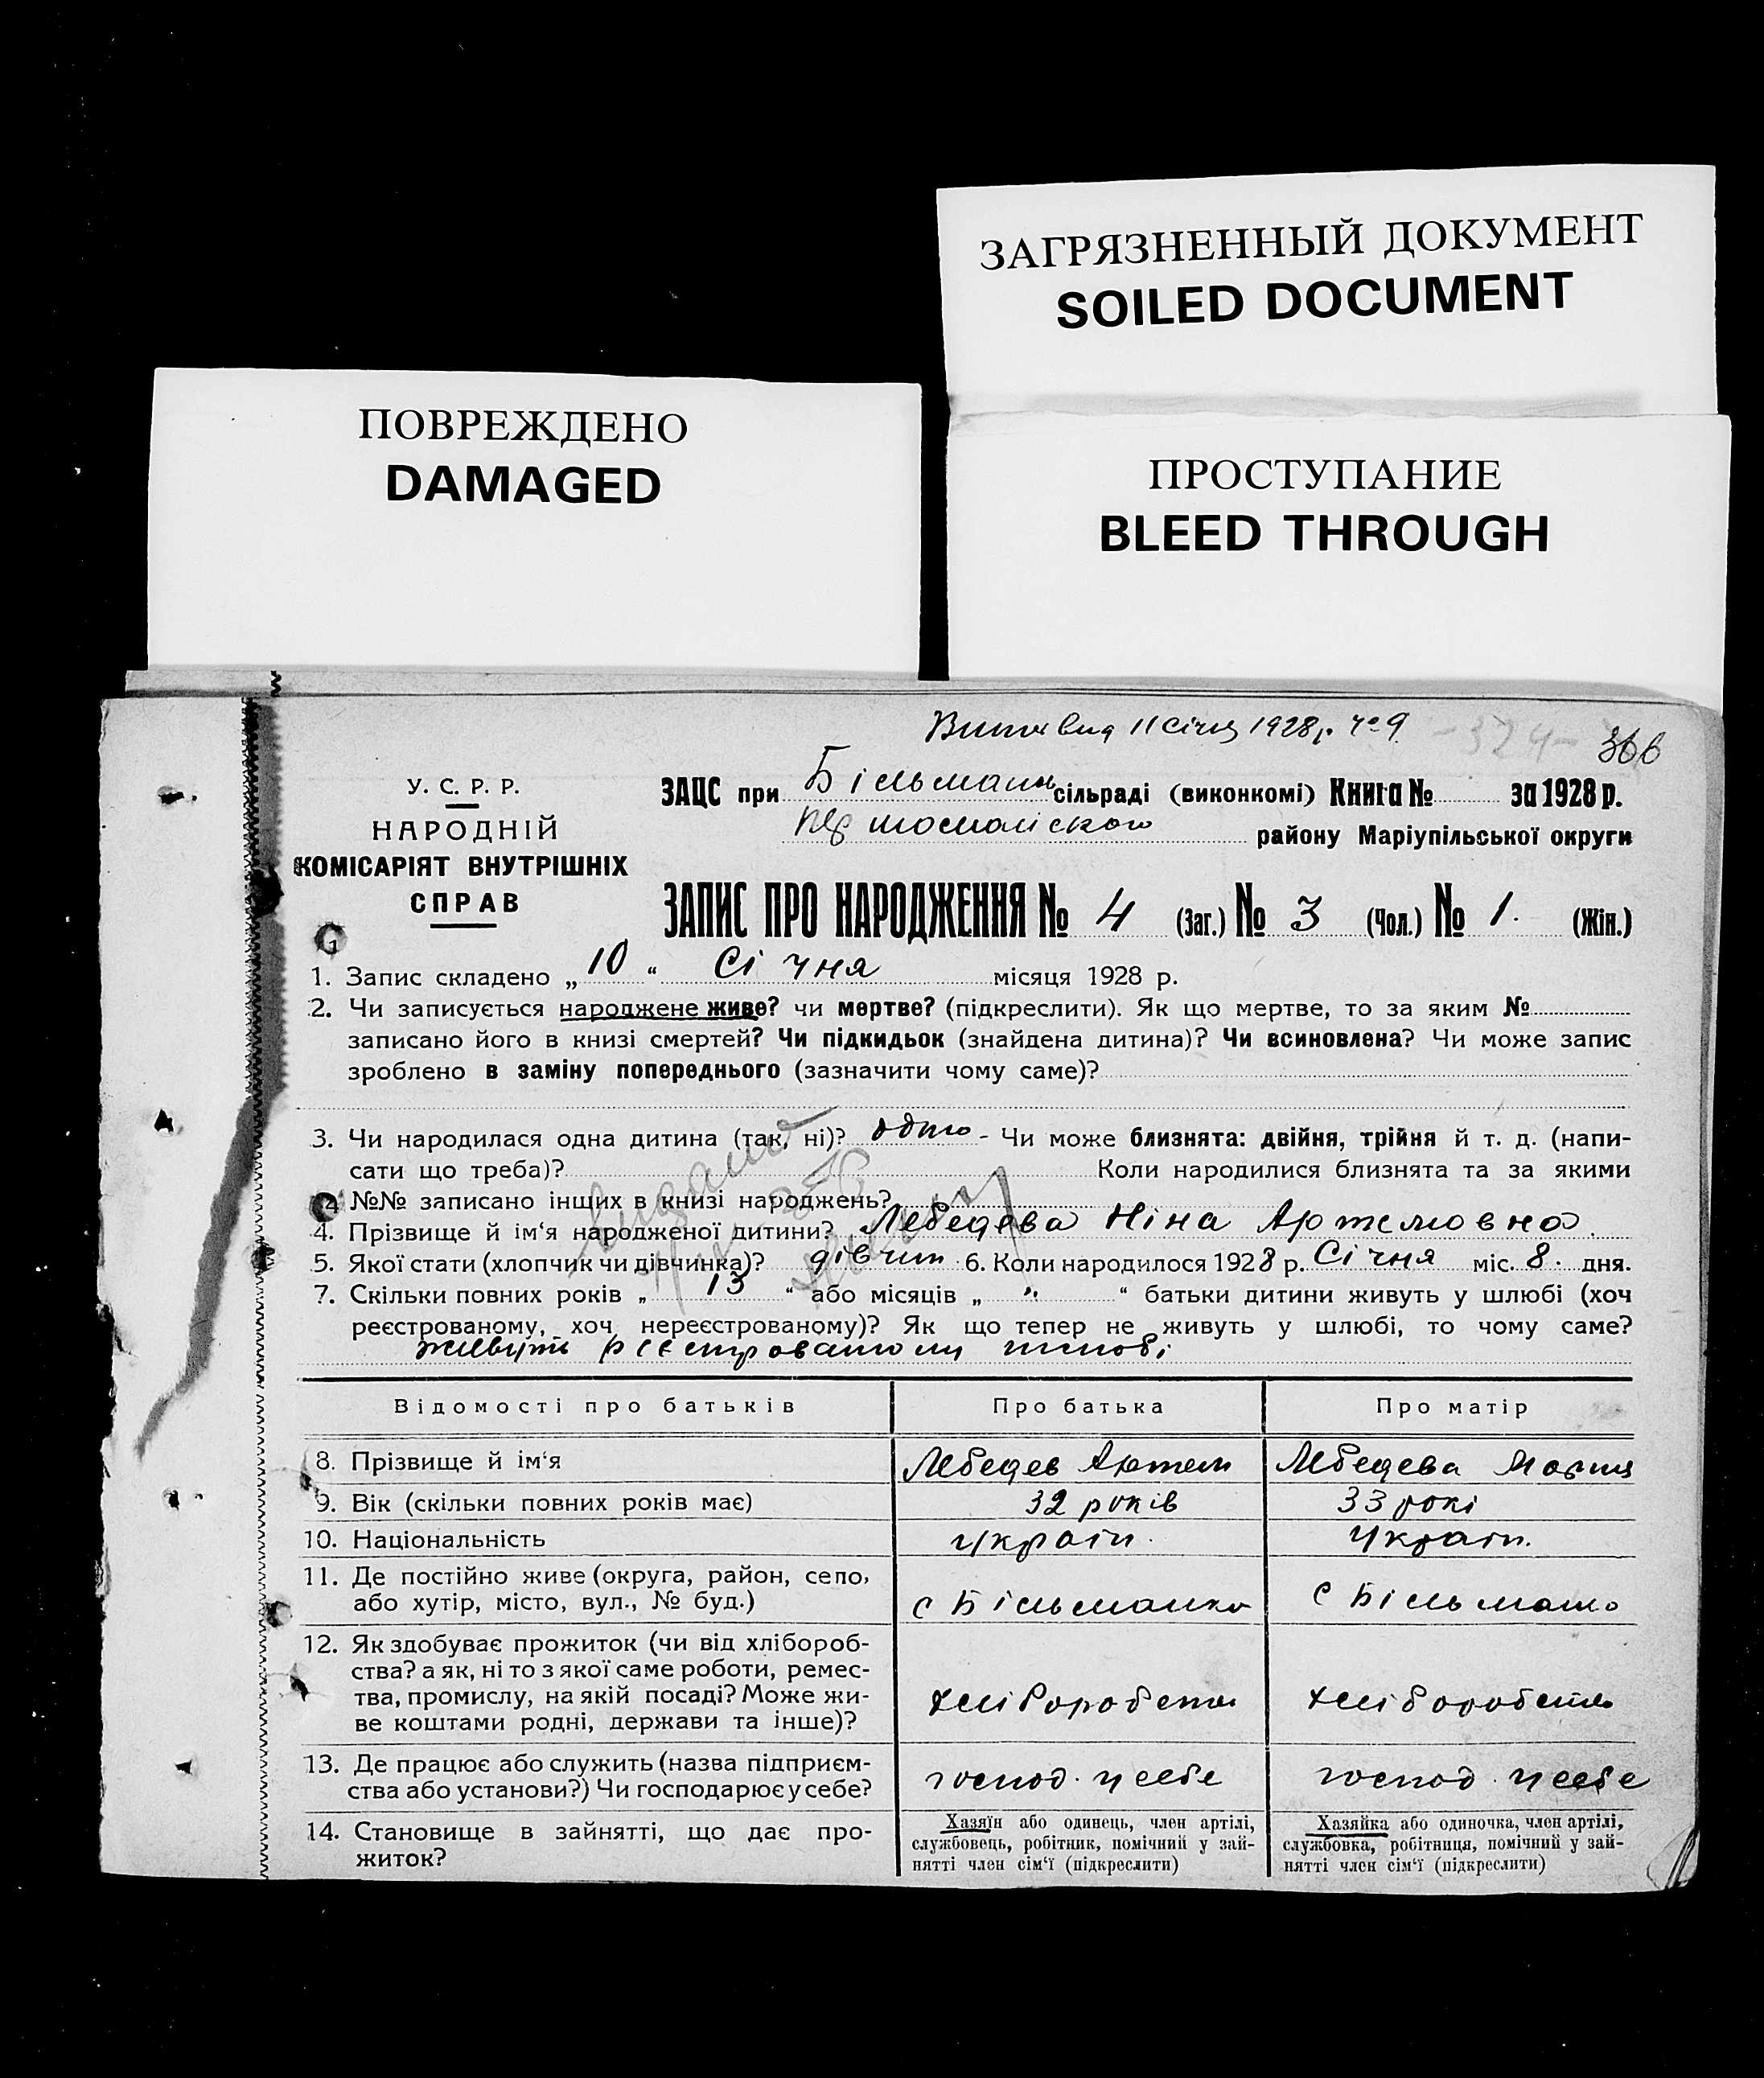 ЗАГРЯЗНЕННЫЙ ДОКУМЕНТ
SOILED DOCUMENT
ПОВРЕЖДЕНО
DAMAGED
ПРОСТУПАНИЕ
BLEED THROUGH
11 січня 1928 р. № 9 -324- 366
У. С. Р. Р.
НАРОДНІЙ
КОМІСАРІЯТ ВНУТРІШНІХ
СПРАВ
ЗАЦС при Більман сільраді (виконкомі) Книга № за 1928 р.
Першомайського району Маріупільської округи
ЗАПИС ПРО НАРОДЖЕННЯ № 4 (Заг.) № 3 (Чол.) № 1. (Жін.)
1. Запис складено „ 10 “ Січня місяця 1928 р.
2. Чи записується народжене живе? чи мертве? (підкреслити). Як що мертве, то за яким №
записано його в книзі смертей? Чи підкидьок (знайдена дитина)? Чи всиновлена? Чи може запис
зроблено в заміну попереднього (зазначити чому саме)?
3. Чи народилася одна дитина (так, ні)? одно - Чи може близнята: двійня, трійня й т. д. (напи-
сати що треба)? Коли народилися близнята та за якими
№№ записано інших в книзі народжень?
4. Прізвище й ім‘я народженої дитини? Лебедева Ніна Артемовна.
5. Якої стати (хлопчик чи дівчинка)? дівчин 6. Коли народилося 1928 р. Січня міс. 8. дня.
7. Скільки повних років „ 13 “ або місяців „ " “ батьки дитини живуть у шлюбі (хоч
реєстрованому, хоч нереєстрованому)? Як що тепер не живуть у шлюбі, то чому саме?
живуть реєстрованому шлюбі
Відомості про батьків Про батька Про матір
8. Прізвище й ім‘я Лебедев Артем Лебедева Мария
9. Вік (скільки повних років має) 32 років 33 рокі
10. Національність Україн. Україн.
11. Де постійно живе (округа, район, село,
або хутір, місто, вул., № буд.) с Більманка с Більманка
12. Як здобуває прожиток (чи від хлібороб-
ства? а як, ні то з якої саме роботи, ремес-
тва, промислу, на якій посаді? Може жи-
ве коштами родні, держави та інше)? хліборобств хліборобств
13. Де працює або служить (назва підприєм-
ства або установи?) Чи господарює у себе? господ. у себе господ. у себе
14. Становище в зайнятті, що дає про-
житок?
Хазяїн або одинець, член артілі,
службовець, робітник, помічний у зай-
нятті член сім‘ї (підкреслити)
Хазяйка або одиночка, член артілі,
службовка, робітниця, помічний у зай-
нятті член сім‘ї (підкреслити)